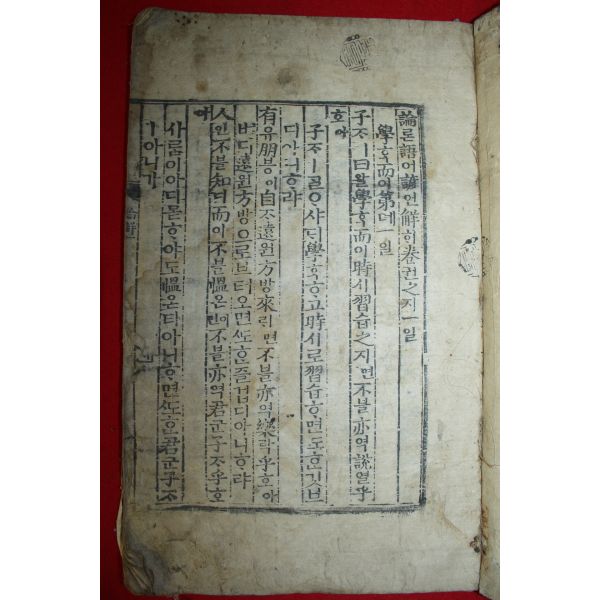 論론語어諺언解ᄒᆡ卷권之지一일
學ᄒᆞᆨ而이第뎨一일
子ᄌᆞㅣ曰왈學ᄒᆞᆨ而이時시習습之지면不블亦역說열乎
호아
子ᄌᆞㅣᄀᆞᆯᄋᆞ샤ᄃᆡ學ᄒᆞᆨᄒᆞ고時시로習습ᄒᆞ면ᄯᅩᄒᆞᆫ깃브
디아니ᄒᆞ랴
有유朋붕이自ᄌᆞ遠원方방來ᄅᆡ면不블亦역樂락乎호아
버디遠원方방으로브터오면ᄯᅩᄒᆞᆫ즐겁디아니ᄒᆞ랴
人인不블知디而이不블慍온이면不블亦역君군子ᄌᆞ乎호
아
사ᄅᆞᆷ이아디몯ᄒᆞ야도慍온티아니ᄒᆞ면ᄯᅩᄒᆞᆫ君군子ᄌᆞ
ㅣ아니가